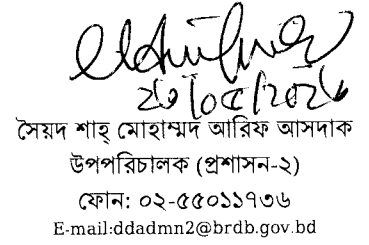 সৈয়দ শাহ্ মোহাম্মদ আরিফ আসদাক
উপপরিচালক (প্রশাসন-২)
ফোন: ০২-৫৫০১১৭৩৬
E-mail:ddadmn2@brdb.gov.bd